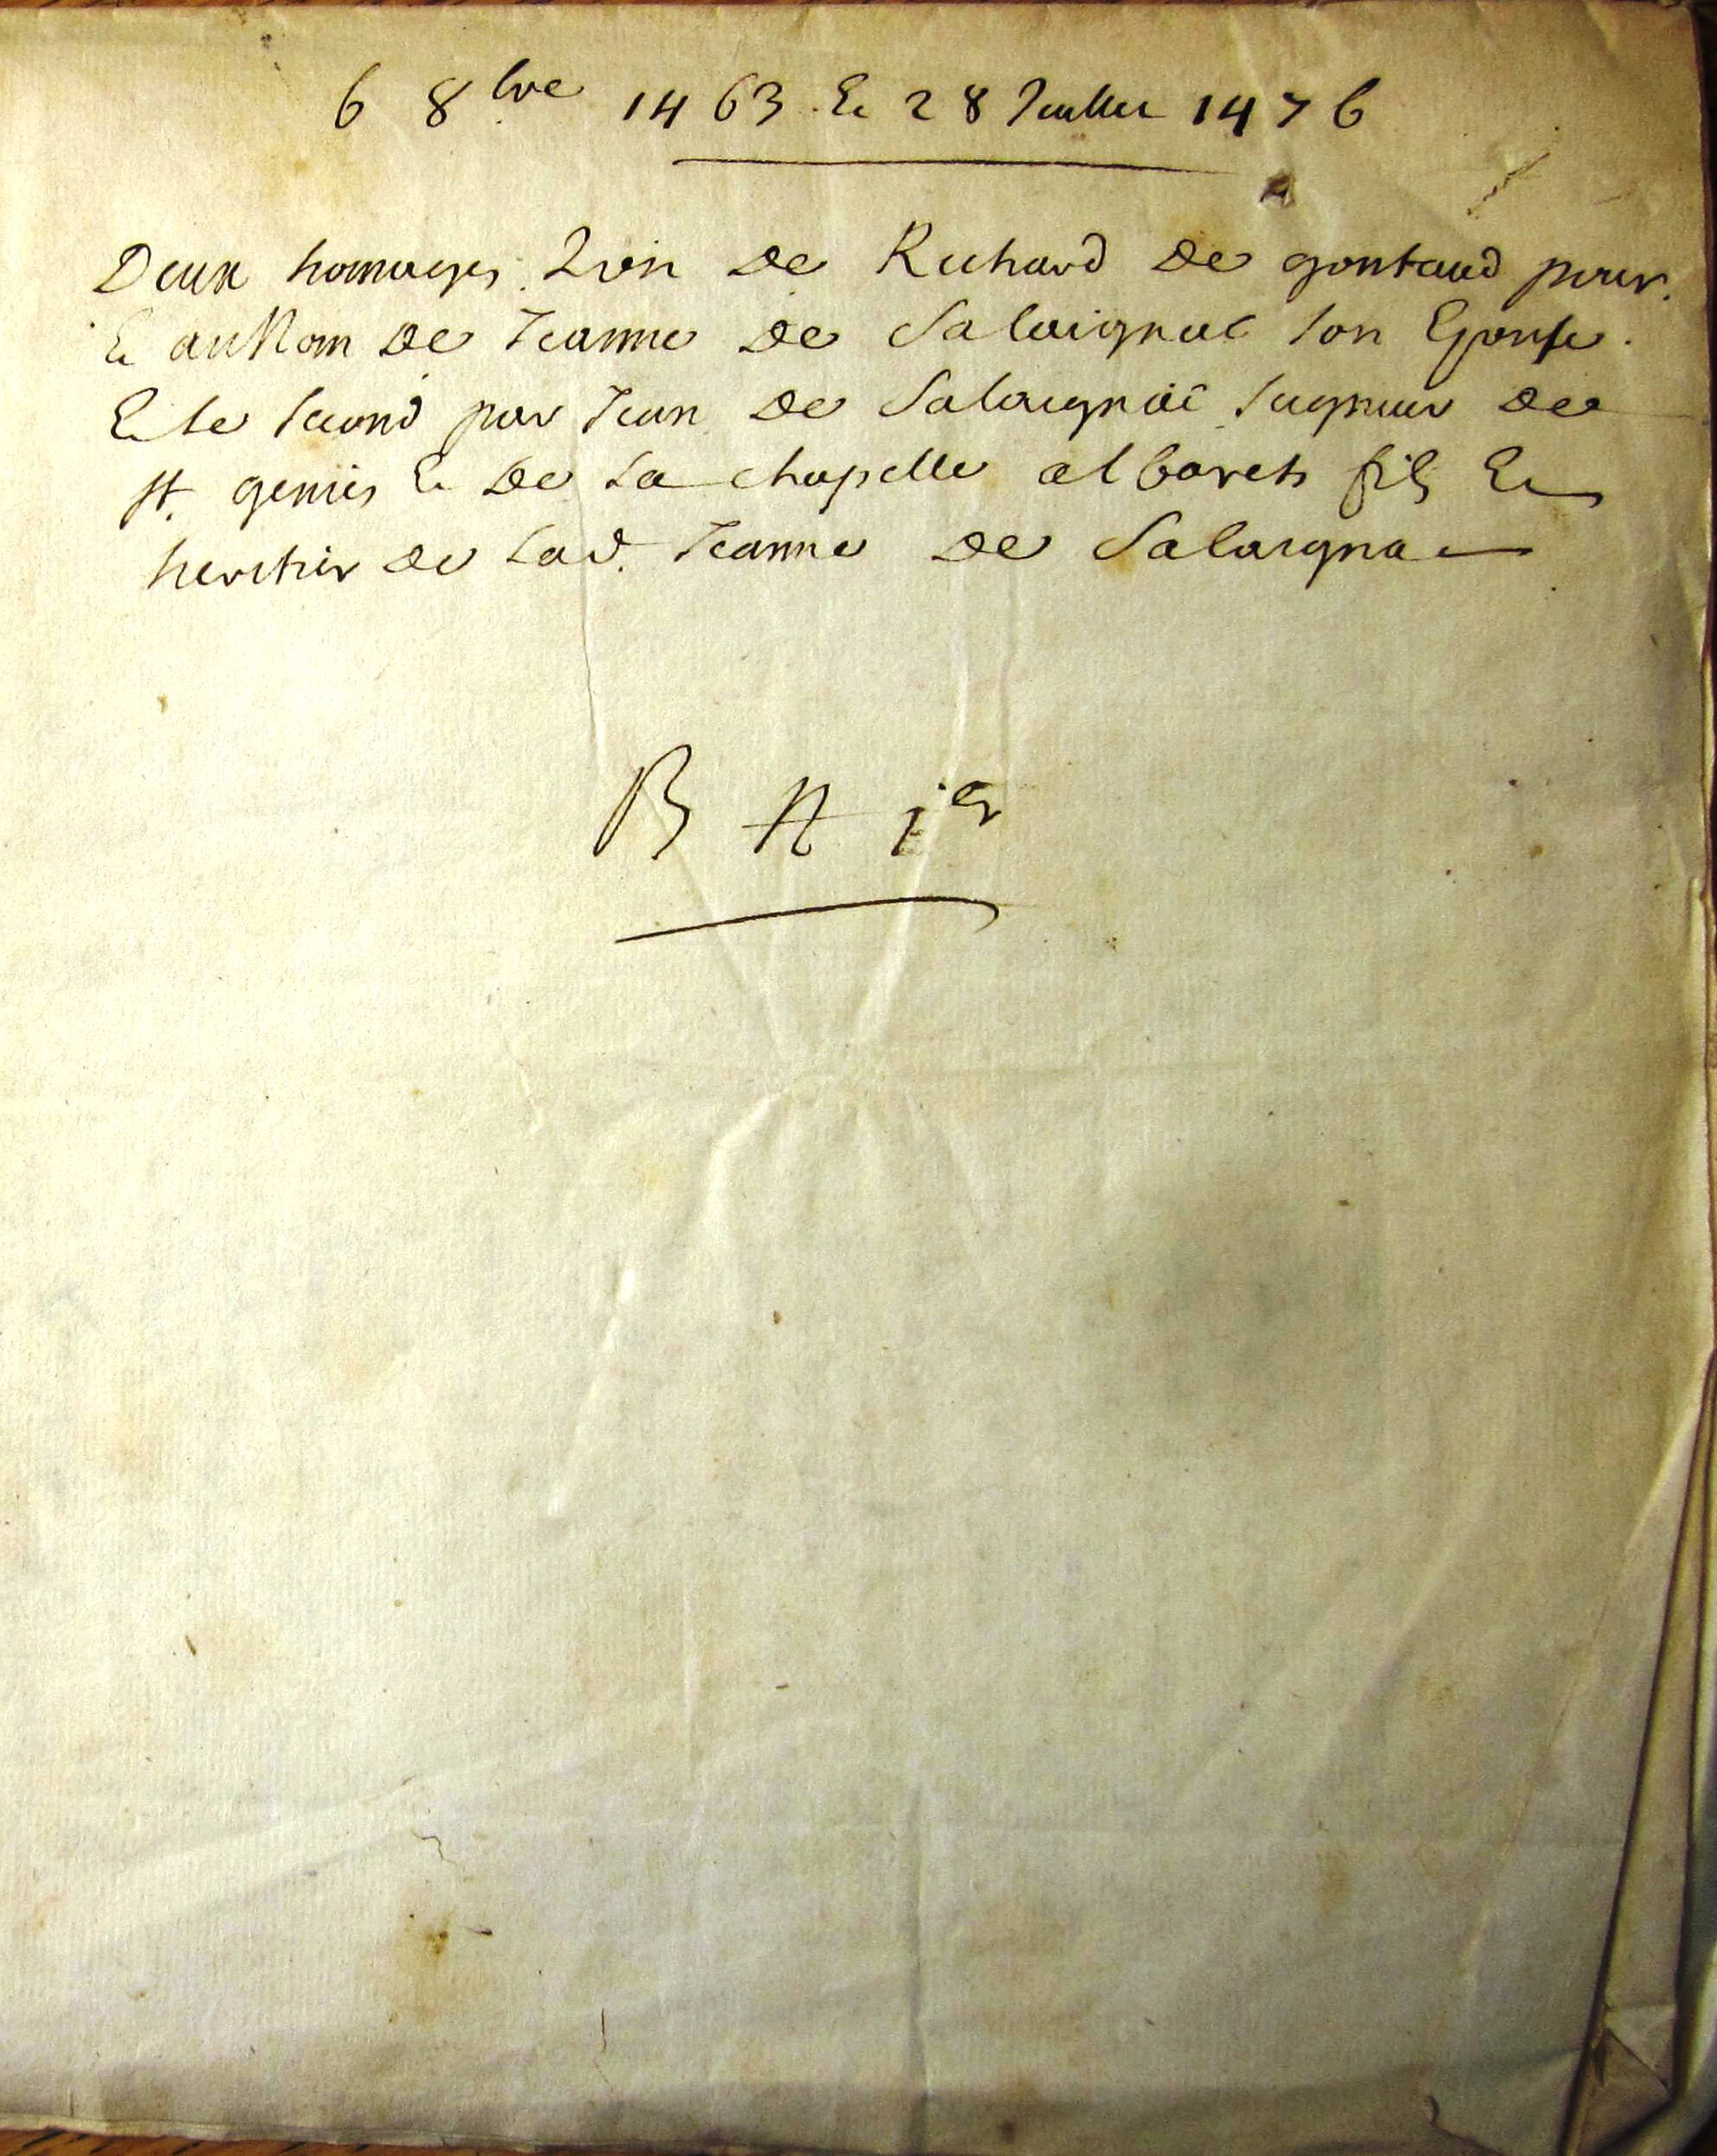 6 8bre 1463 Et 28 Juillet 1476
Deux homages L'un de Richard de gontaud pour
Et au Nom de Jeanne de Salaignac son Epouse
Et le second par Jean de Salaignac seigneur de
St. genies Et de La chapelle albarets fils Et
heritier de Lad. Jeanne de Salaignac
B N 1er